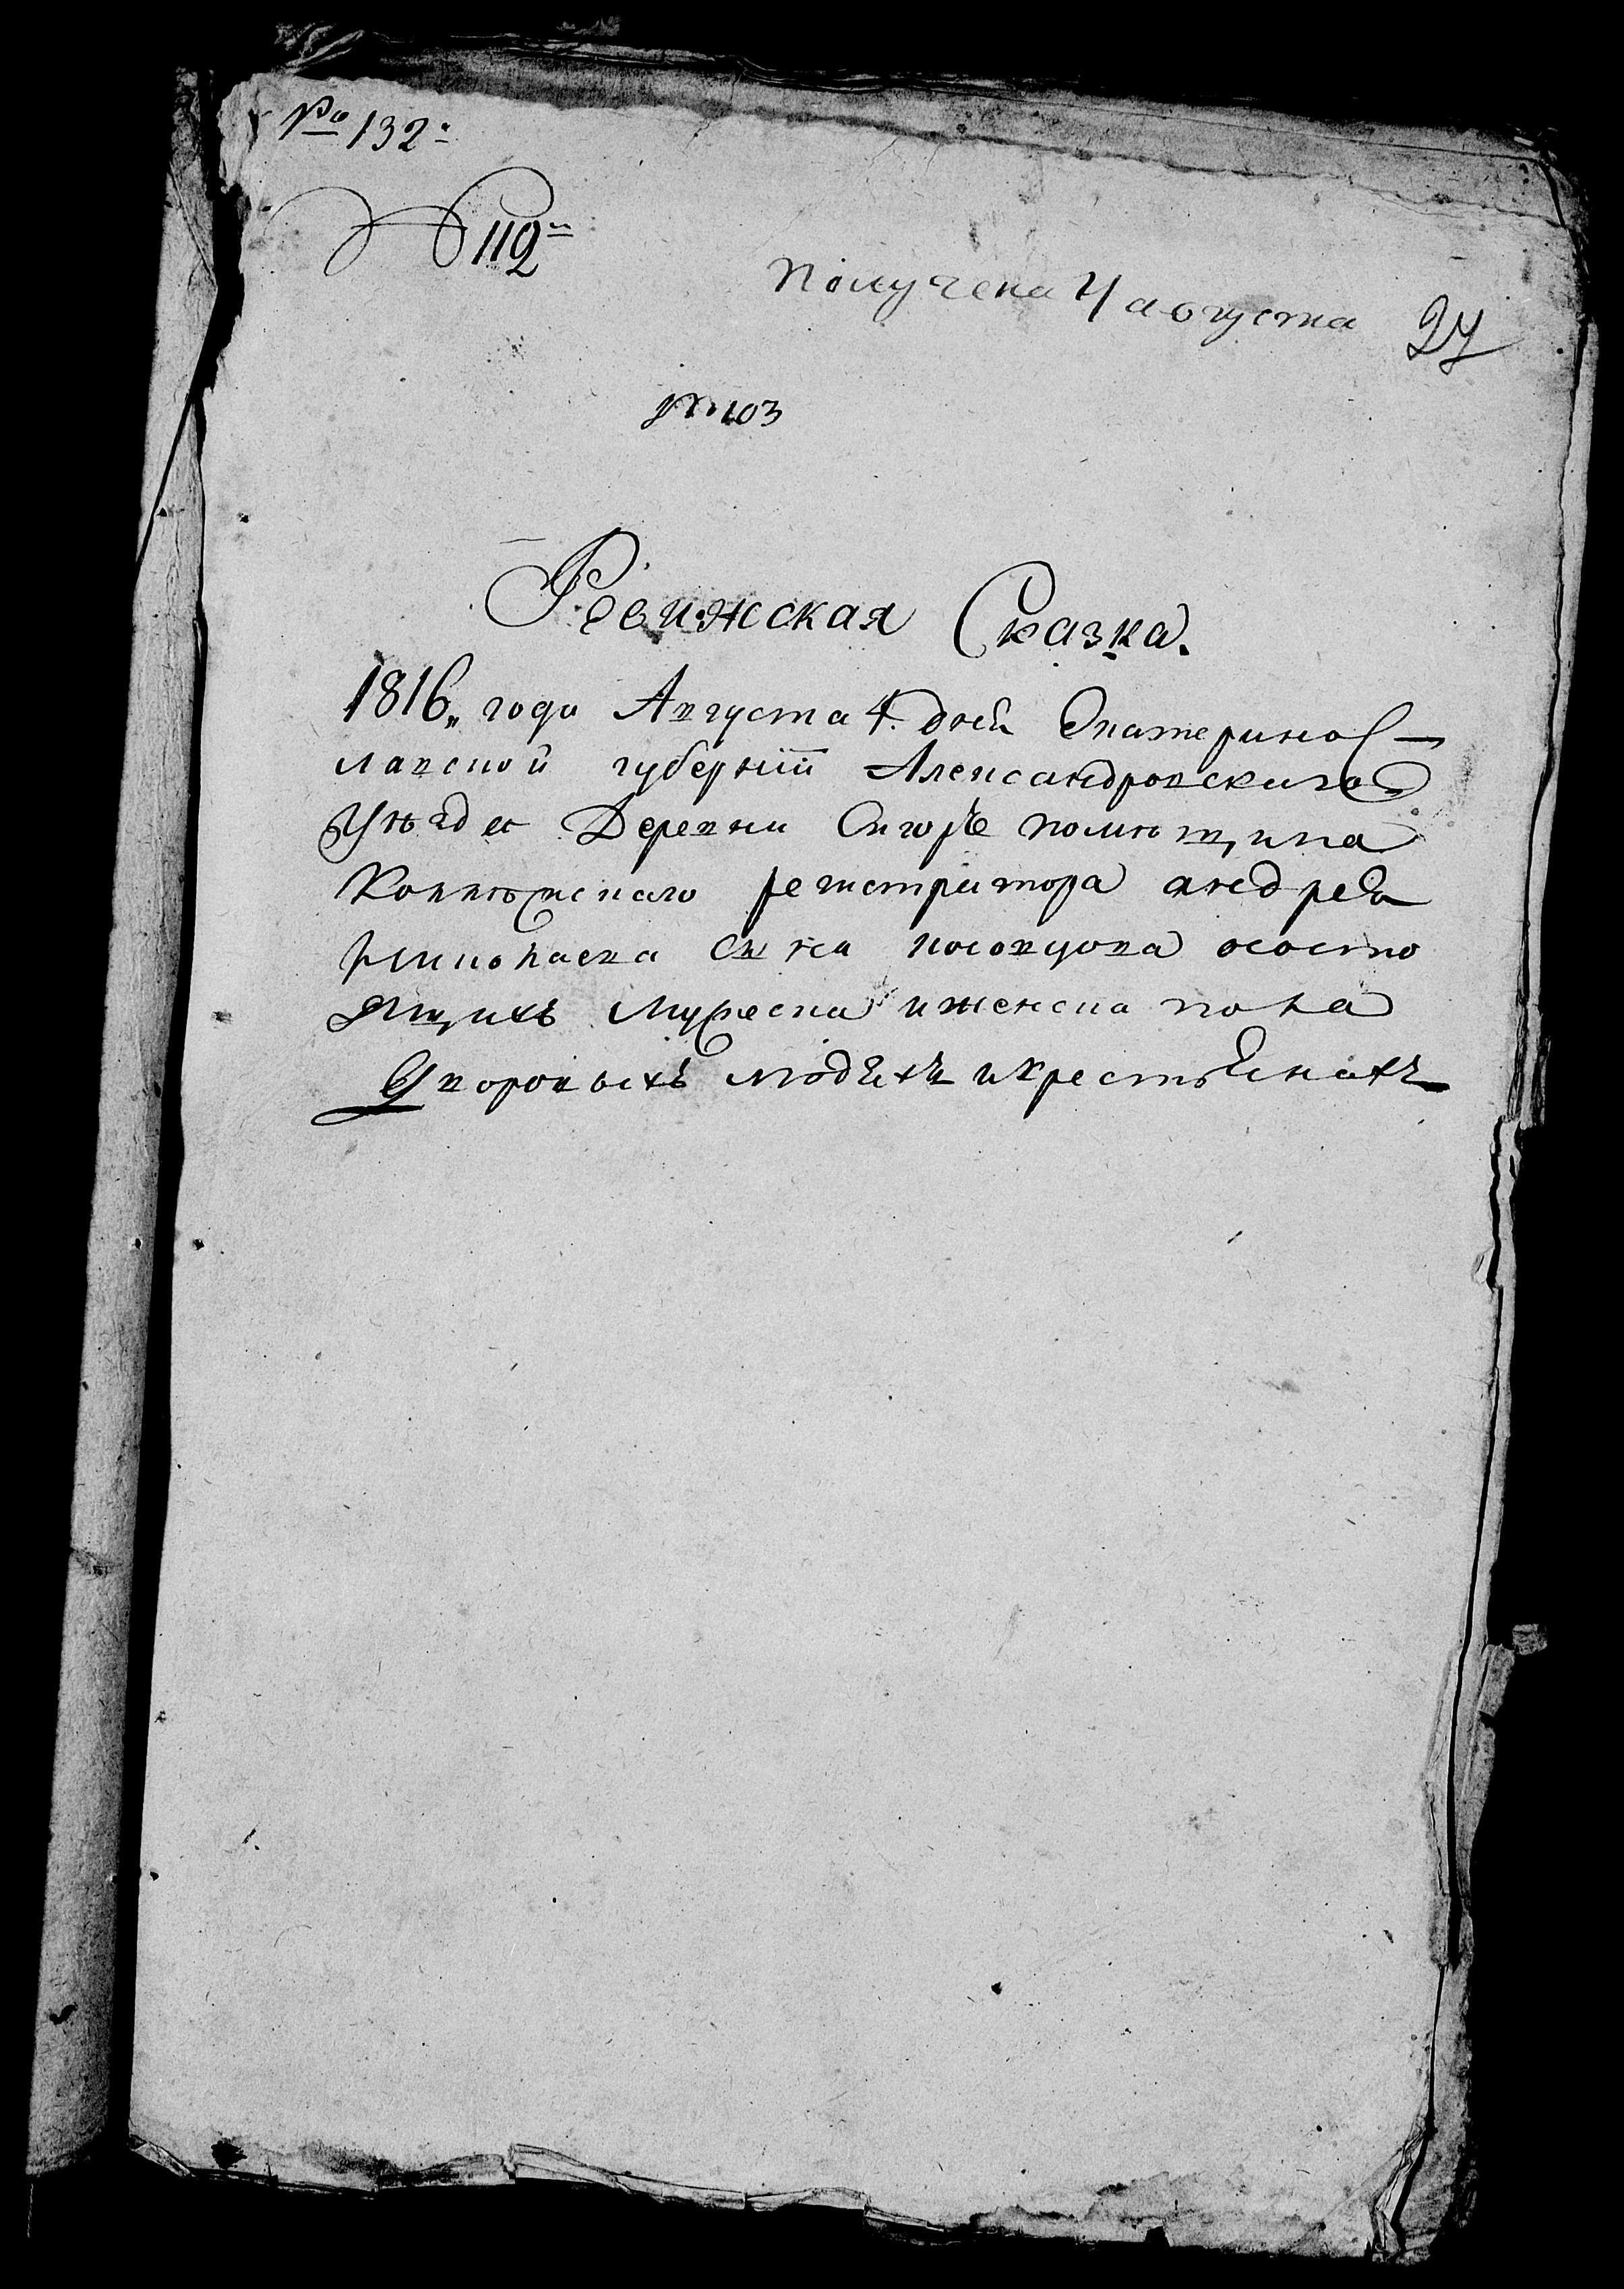 № 132
№ 112
Получена 4 августа 27
№ 103
Ревижская Сказка.
1816„ года Августа 4. дня Екатеринос-
лавской губернии Александровскаго
Уѣзда Деревни помѣщика
Коллежскаго регистратора андрея
сына ососто
ящихъ Мужеска и женска пола
Дворовыхъ людѣхъ и крестьянахъ